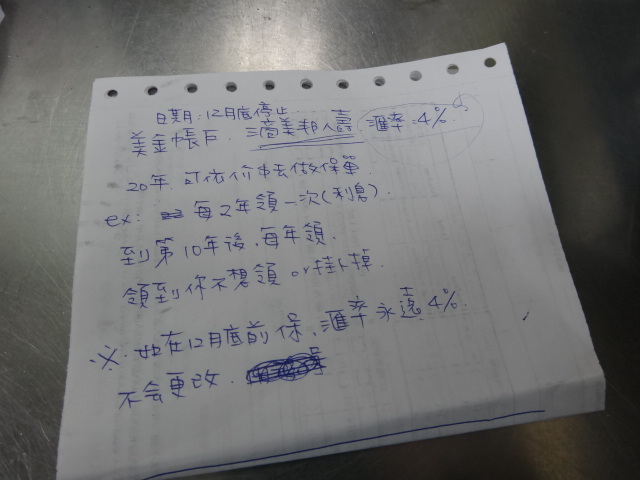 日期:12月底停止
美金帳戶. 三商美邦人壽. 匯率:4%.
20年. 可依价中去做保單.
ex: 每2年領一次(利息).
到第10年後,每年領.
領到你不想領 or掛掉.
※.如在12月底前保、匯率永遠4%.
不会更改.